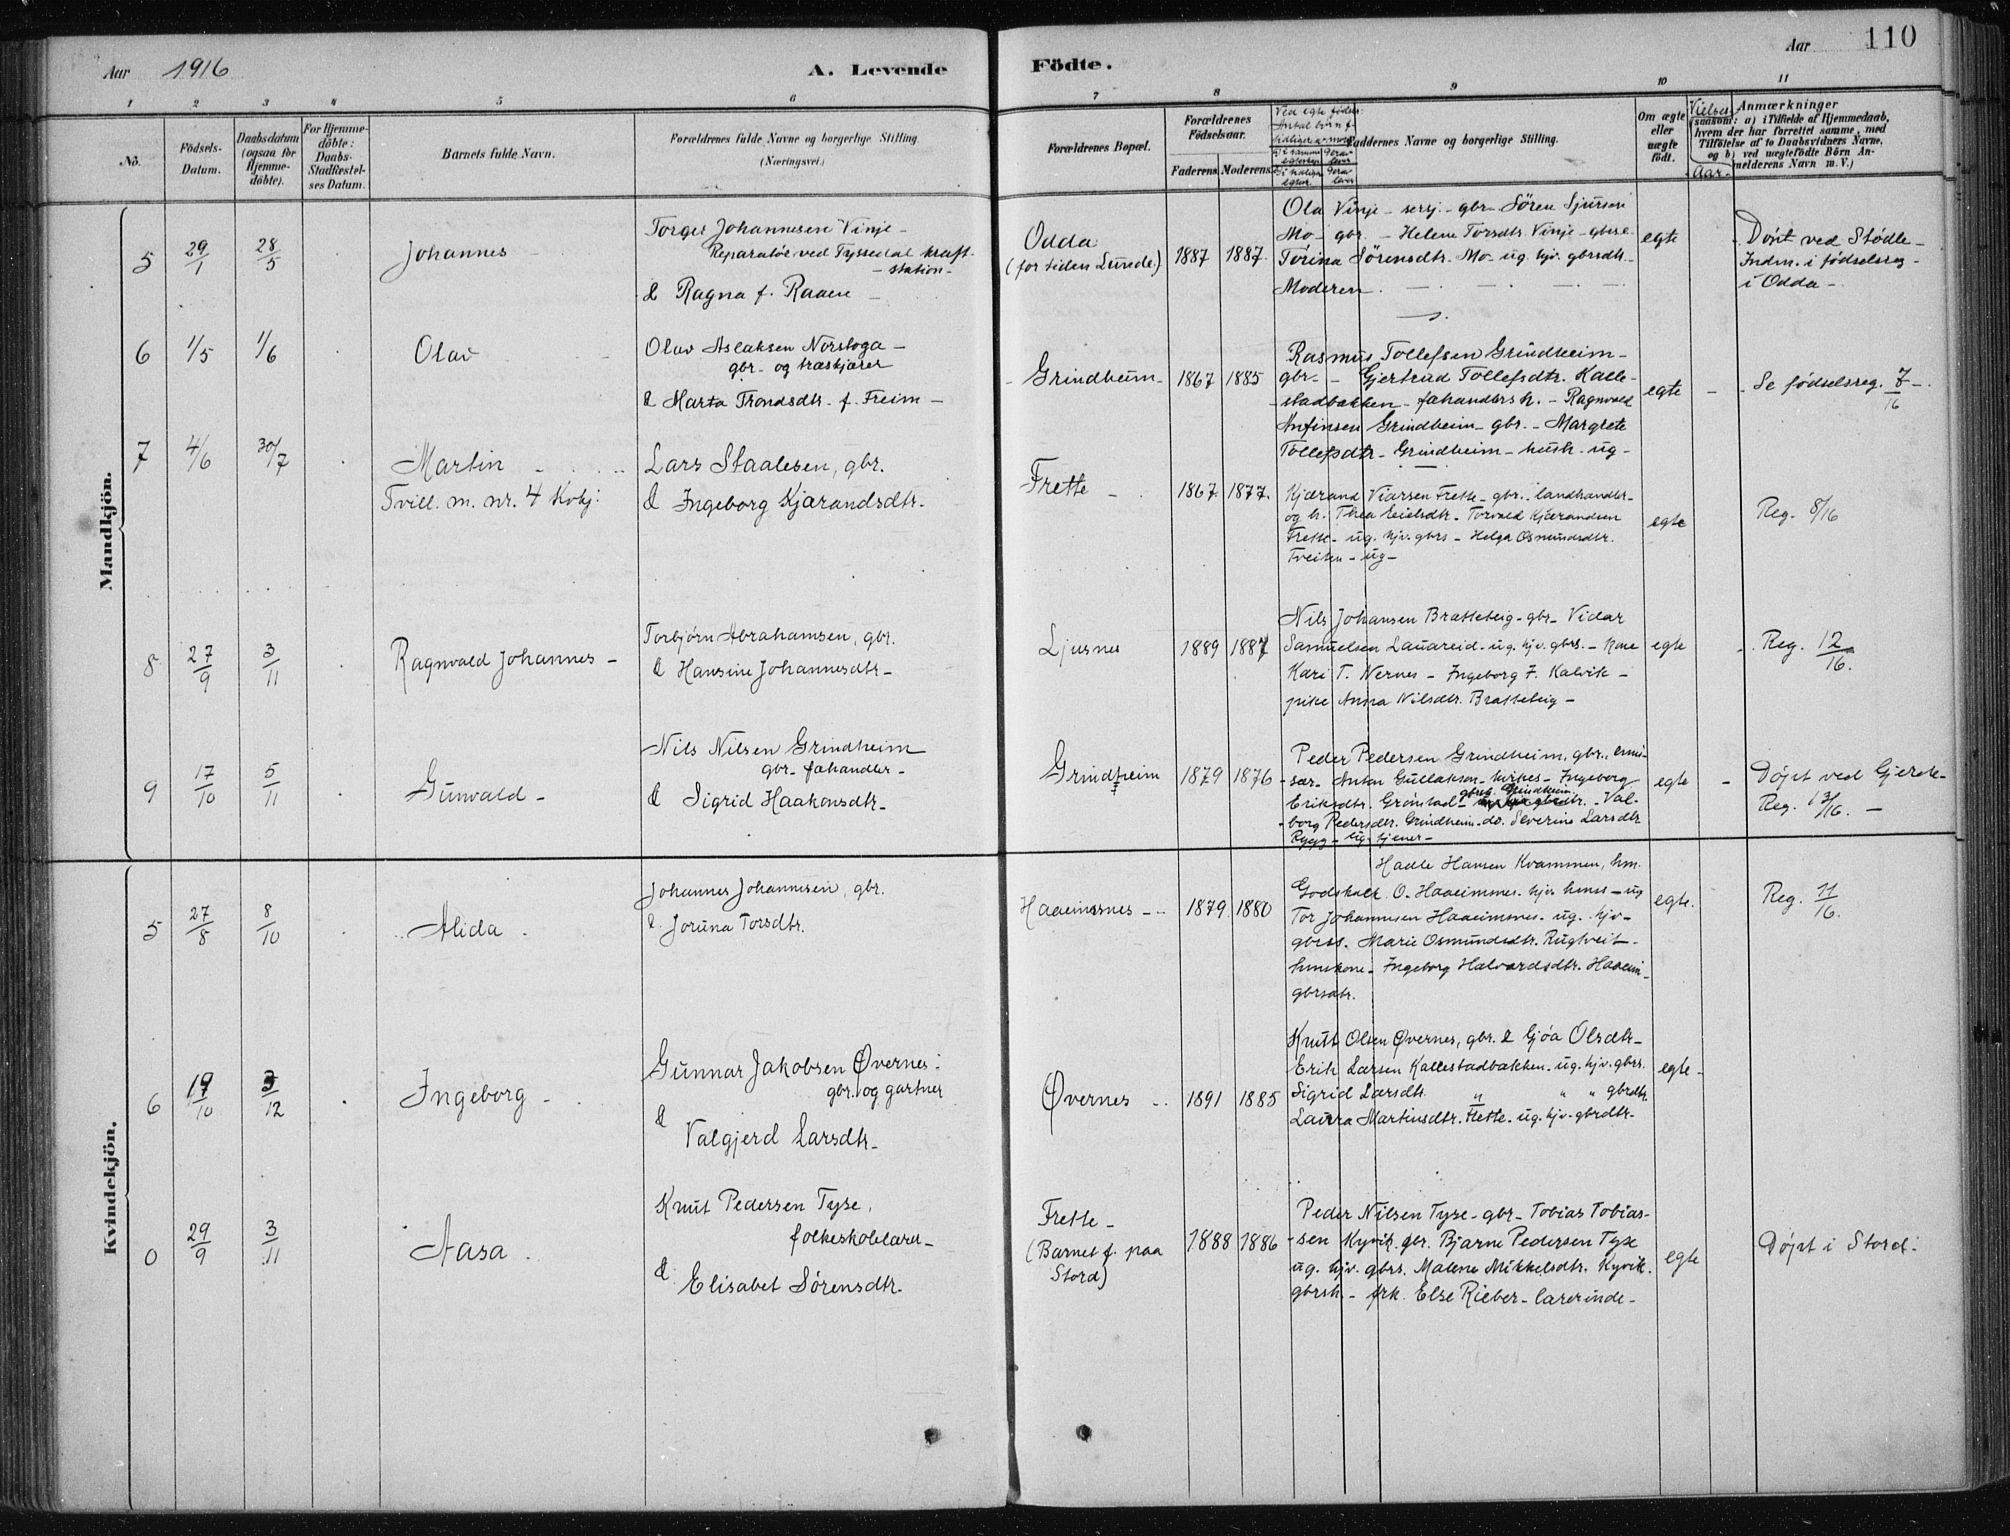 Aar 1916
A. Levende Födte.
Aar 110
1 2 3 4 5 6 7 8 9 10 11
No.
Födsels-
Datum.
Daabsdatum
(ogsaa for
Hjemme-
döbte).
For Hjemme-
döbte:
Daabs-
Stadfæstel-
ses Datum.
Barnets fulde Navn.
Forældrenes fulde Navne og borgerlige Stilling.
(Næringsvei.)
Forældrenes Bopæl.
Forældrenes
Födselsaar.
Faderens. Moderens.
Faddernes Navne og borgerlige Stilling.
Om ægte
eller
uægte
födt.
Vielses
Aar.
Anmærkninger
(saasom: a) i Tilfælde af Hjemmedaab,
hvem der har forrettet samme, med
Tilföielse af to Daabsvidners Navne,
og b) ved uægtefödte Börn An-
melderens Navn m. V.)
Mandkjön.
5 29/1 28/5 Johannes
Torger Johannesen Vinje -
Reparatør ved Tyssedal kraft-
station -
& Ragna f. Raaen -
Odda
(for tiden Lunde)
1887 1887.
Ola Vinje - serj. - gbr - Sören Sjursen
Mo - gbr. - Helene Torsdtr Vinje - gbrse
Tørina Sörensdtr. Mo - ug. hjv. gbrsdtr. -
Moderen.
egte
Döpt ved Stödle -
Indm. i födselsreg -
i Odda -
6 1/5 1/6 Olav
Olav Aslaksen Norstoga -
gbr - og træskjærer
& Marta Trondsdtr - f. Freim -
Grindheim - 1867 1885
Rasmus Tollefsen Grindheim -
gbr - - Gjertrud Tollefsdtr. Kalle-
stadbakken - fahandlersh. - Ragnvald
Anfinsen Grindheim - gbr. - Margrete
Tollefsdtr - Grindheim - hush. ug -
egte -
Se födselsreg. 7/16 -
7 4/6 30/7 Martin
Tvill. m. nr. 4 Kvkj:
Lars Staalesen, gbr.
& Ingeborg Kjærandsdtr.
Frette - 1867. 1877.
Kjærand Viarsen Frette - gbr. landhandler -
og h. Thea Eielsdtr. Torvald Kjærandsen
Frette - ug. hjv. gbrs - Helga Osmundsdtr.
Tveiten - ug -
egte
Reg. 8/16
8 27/9 3/11 Ragnvald Johannes -
Torbjørn Abrahamsen, gbr.
& Hansine Johannesdtr -
Ljusnes 1889 1887
Nils Johansen Bratteteig - gbr - Vidar
Samuelsen Lauareid - ug. hjv. gbrs. - Kone
Kari T. Nernes - Ingeborg J. Kalvik -
pike Anna Nilsdtr. Bratteteig -
egte
Reg. 12/16.
9 17/10 5/11 Gunvald -
Nils Nilsen Grindheim
gbr - fahandler -
& Sigrid Haakonsdtr -
Grindheim 1879 1876
Peder Pedersen Grindheim, gbr., emis-
sær - Antan Gullakson - Ingeborg
Eriksdtr. Grønstad - gbrsh. Grindheim - Val-
borg Pedersdtr. Grindheim - do. Severine Larsdtr
Rygg - ug. tjener -
egte -
Döpt ved Gjerde -
Reg. 13/16. -
Kvindekjön.
5 27/8 8/10 Alida
Johannes Johannesen, gbr.
& Joruna Torsdtr.
Haaeimsnes - 1879. 1880
Hadle Hansen Kvammen, hm.
Godskalk O. Haaeimsnes - hjv hmss - ug
Tor Johannesen Haaeimsnes - ug. hjv -
gbrss. Marie Osmundsdtr. Rugtveit -
hmskone - Ingeborg Halvardsdtr. Haaeim -
gbrsdtr.
egte.
Reg. 11/16.
6 19/10 3/12 Ingeborg -
Gunnar Jakobsen Øvernes:
gbr. og gartner
&
Valgjerd Larsdtr -
Øvernes - 1891 1885
Knut Olsen Øvernes, gbr. & Gjøa Olsdtr -
Erik Larsen Kallestadbakken - ug. hjv. gbrs.
Sigrid Larsdtr. " " " gbrdtr.
Laura Martinsdtr. Frette - ug. hjv - gbrdtr -
egte -
0 29/9 3/11 Aasa.
Knut Pedersen Tyse,
folkeskolelærer -
&
Elisabet Sörensdtr.
Frette -
(Barnet f. paa
Stord)
1888 1886
Peder Nilsen Tyse - gbr - Tobias Tobias-
sen Kyvik. gbr. Bjarne Pedersen Tyse
ug. hjv. gbrs. Malene Mikkelsdtr. Kyvik.
gbrsk. - frk. Else Rieber - lærerinde -
egte
Döpt i Stord.